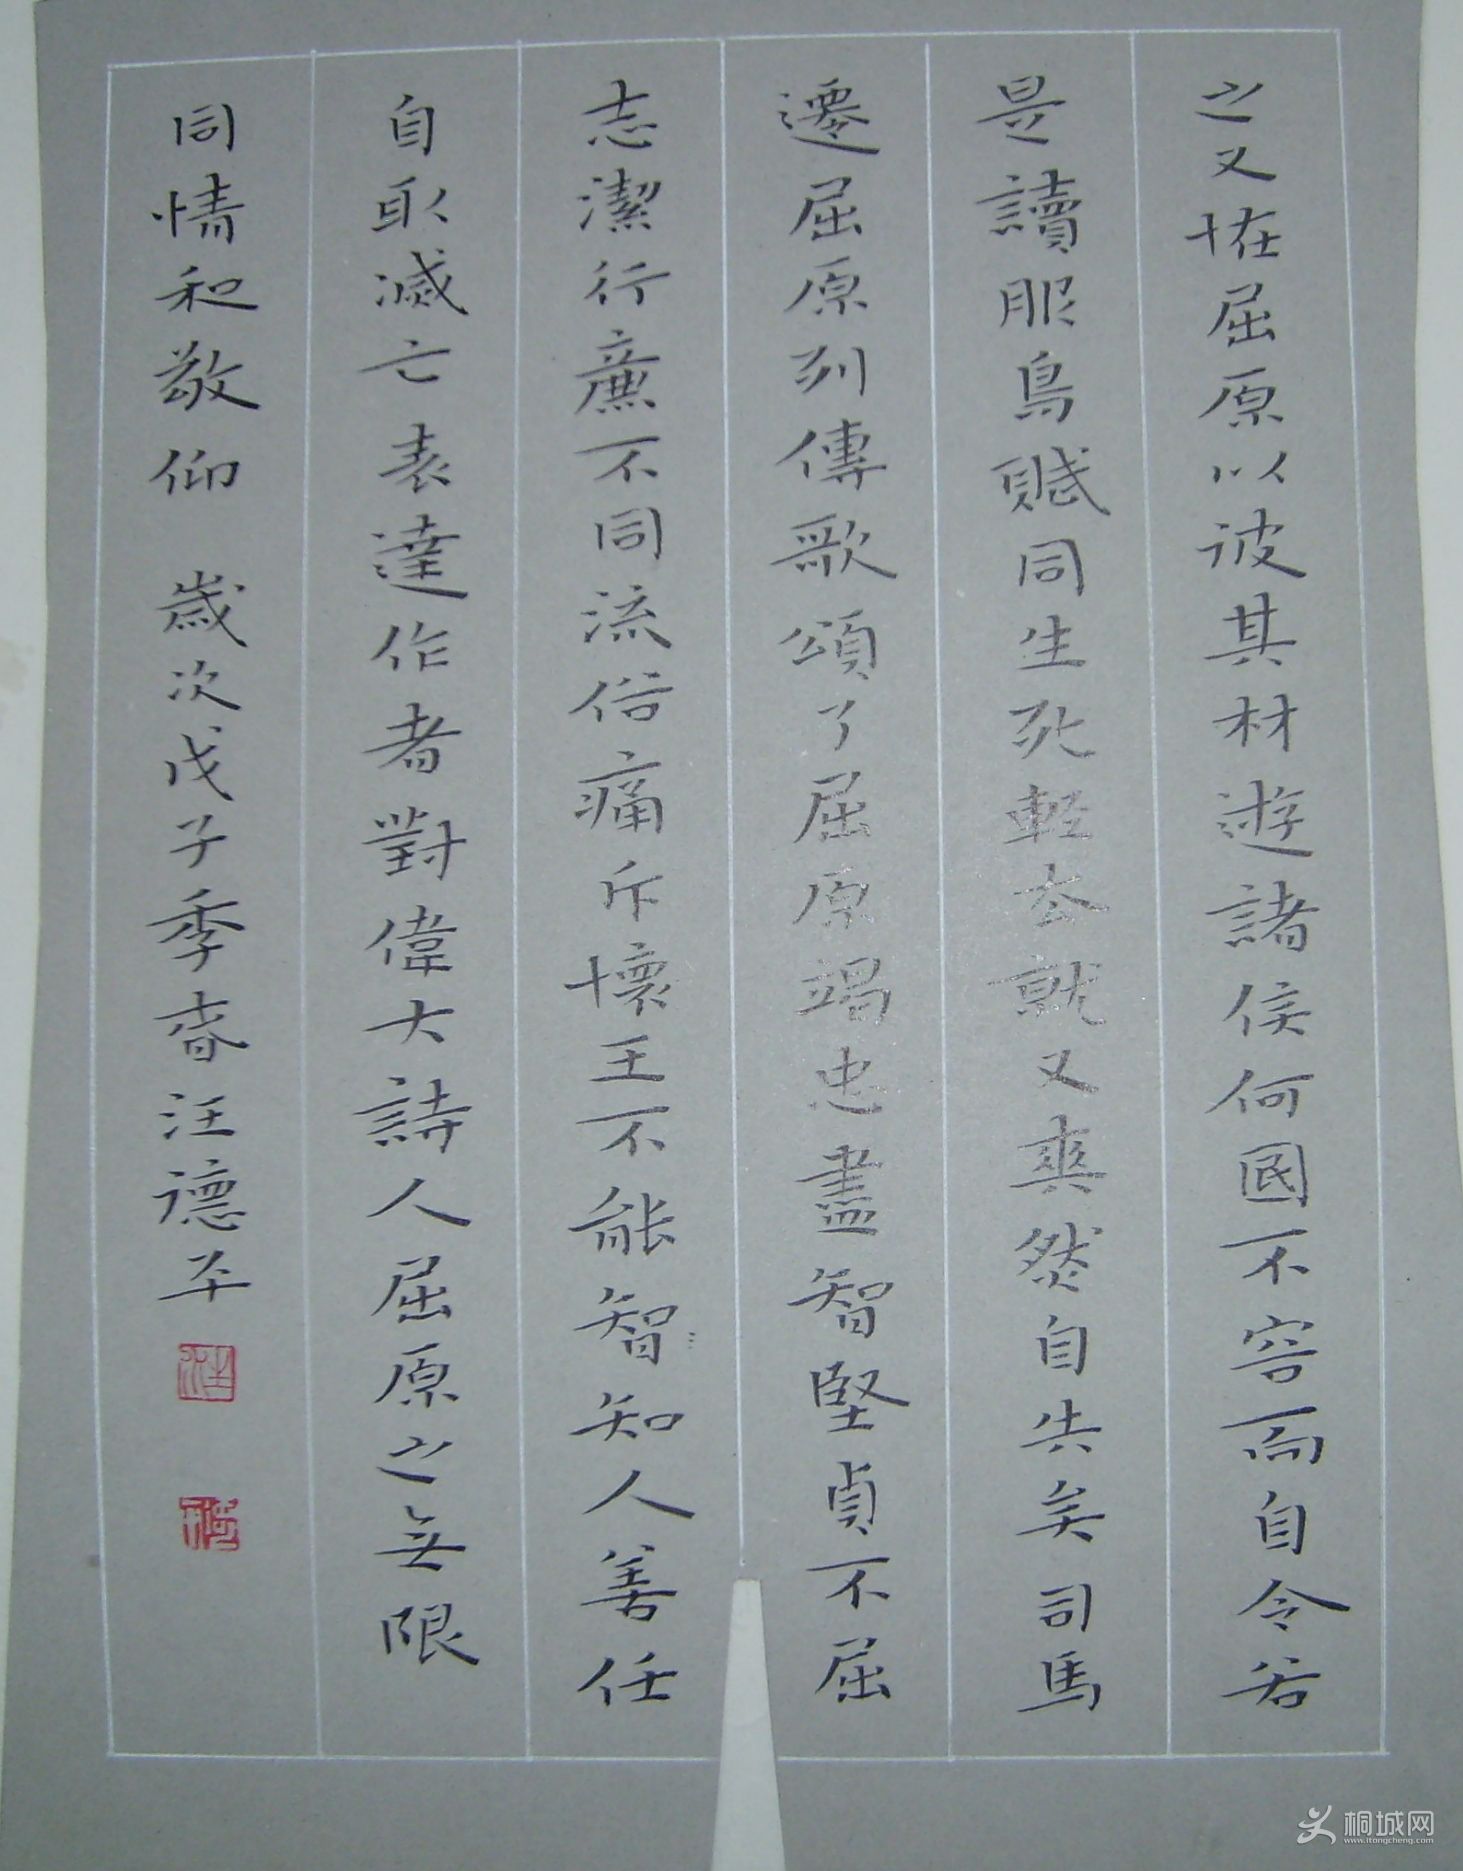 之又恠屈原以彼其材遊諸侯何國不容而自令若
是讀服鳥賦同生死輕去就又爽然自失矣司馬
遷屈原列傳歌頌了屈原竭忠盡智堅貞不屈
志潔行廉不同流俗痛斥懷王不能智知人善任
自取滅亡表達作者對偉大詩人屈原之無限
同情和敬仰 歲次戊子季春汪德平
汪
桐城网
www.itongcheng.com